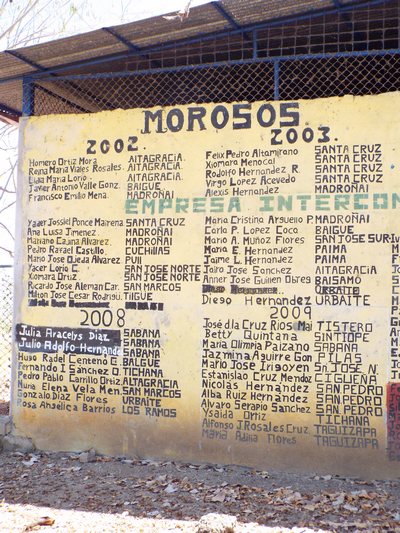 MOROSOS
2002.
Homero Ortiz Mora AITAGRACIA.
Reina Maria Viales Rosales. AITAGRACIA.
Elida Maria Lorio AITAGRACIA.
Javier Antonio Valle Gonz. BAIGUE
Francisco Emilio Mena. MADROÑAI
2003.
Felix Pedro Altamirano SANTA CRUZ
Xiomara Menocal SANTA CRUZ
Rodolfo Hernandez R. SANTA CRUZ
Virgo Lopez Acevedo SANTA CRUZ
Alexis Hernandez MADROÑAI
EMPRESA INTERCON
Yader Jossiel Ponce Mairena SANTA CRUZ
Ana Luisa Jimenez MADROÑAI
Mariano Cajina Alvarez MADROÑAI
Pedro Rafael Castillo CUCHILLAS
Mario Jose Ojeda Alvarez PUII
Yacer Lorio C. SAN JOSE NORTE
Xiomara Ortiz SAN JOSE NORTE
Ricardo Jose Aleman Car. SAN MARCOS
Milton Jose Cesar Rodrigu. TIIGUE
Maria Cristina Arguello P. MADROÑAI
Carla P. Lopez Coco BAIGUE
Mario A. Muñoz Flores SAN JOSE SUR
Maria E. Hernandez PAIMA
Jaime L. Hernandez PAIMA
Jairo Jose Sanchez AITAGRACIA
Anner Jose Guillen Obres BAISAMO
URBAITE
Diego Hernandez URBAITE
2008
Julia Aracelys Diaz SABANA
Julio Adolfo Hernande SABANA
Hugo Radel Centeno G. BALGUE
Fernando I Sanchez O. TICHANA
Pedro Pablo Carrillo Ortiz ALTAGRACIA
Nuria Elena Vela Men. SAN MARCOS
Gonzalo Diaz Flores URBAITE
Rosa Ansélica Barrios LOS RAMOS
2009
José dla Cruz Rios Mai TISTERO
Betty Quintana SINTIOPE
Maria Olimpia Paizano SABANA
Jazmina Aguirre Gon PILAS
Mario Jose Irigoyen Sn. JOSE N.
Estanislao Cruz Mendoz CIGUEÑA
Nicolas Hernandez SAN PEDRO
Alba Ruiz Hernandez SAN PEDRO
Alvaro Serapio Sanchez SAN PEDRO
Ysalda Ortiz TICHANA
Alfonso J Rosales Cruz TAGUIZAPA
Maria Adina Flores TAGUIZAPA